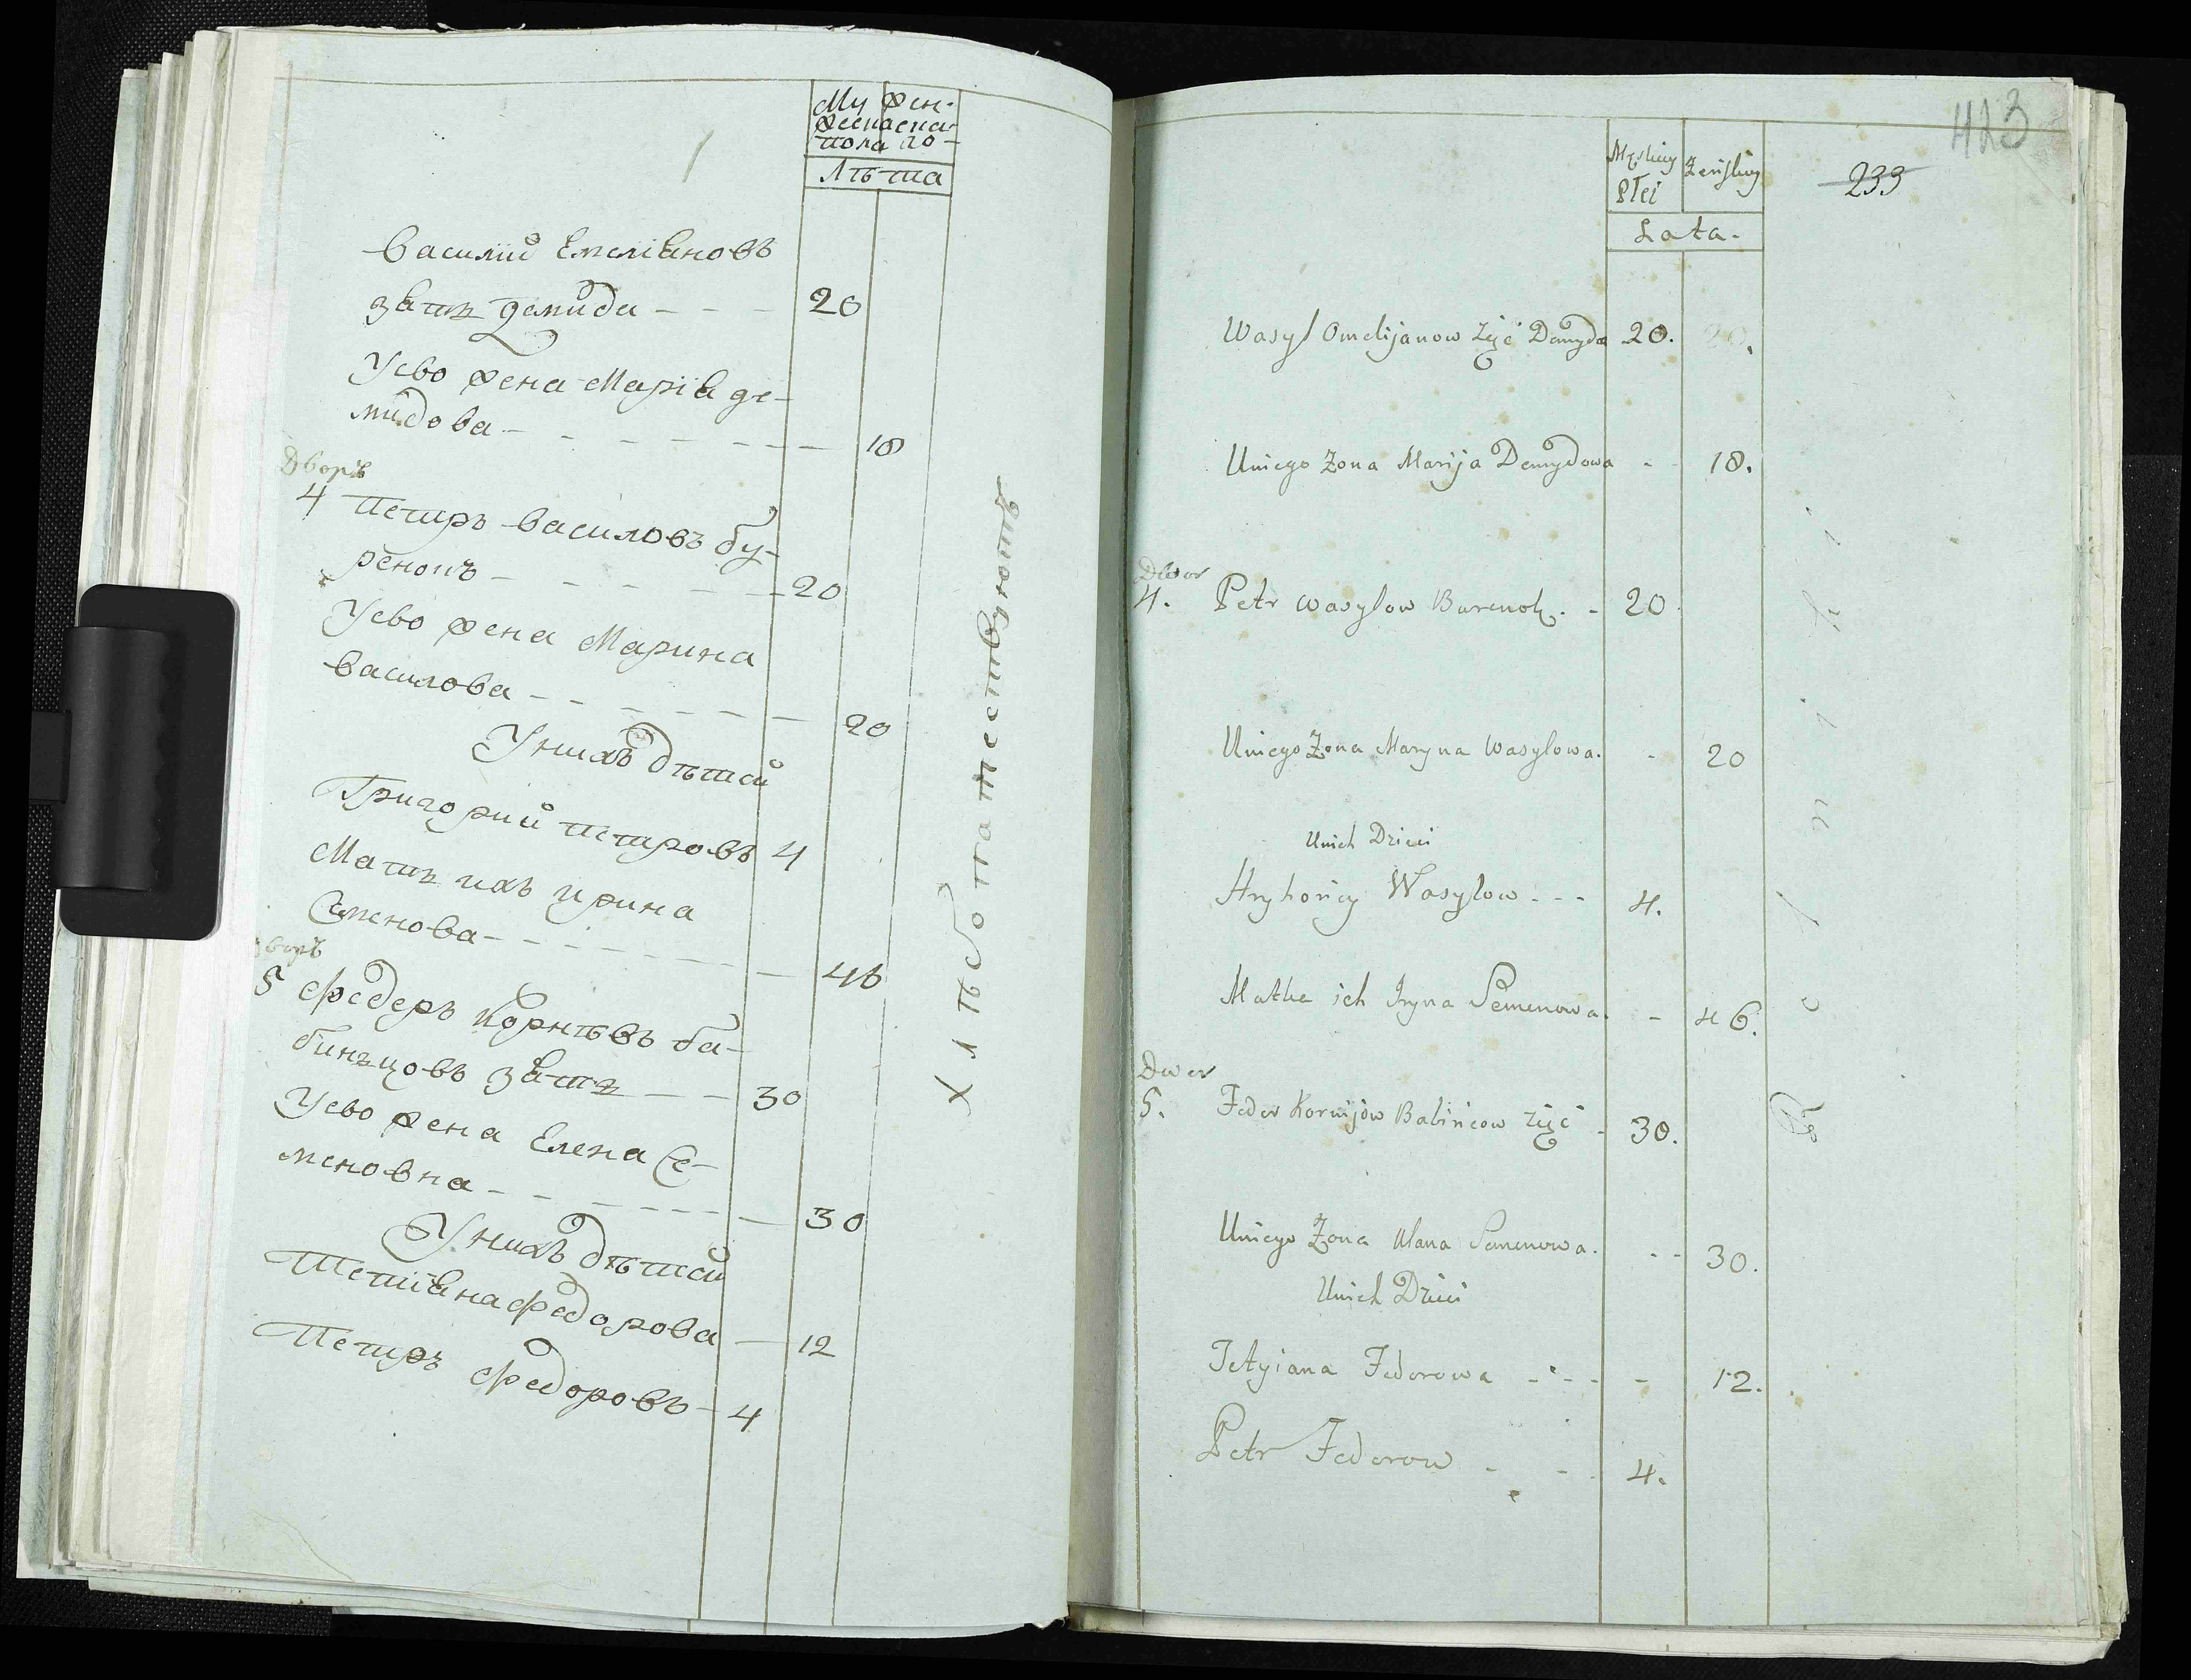 Му Жен-
жеска ска-
пола го-
Лѣта
Василий Емеліановъ
зять демида - - - 20
У ево жена Марія де-
мидова - - - - - - 18
Дворъ
4 Петръ Василовъ бу-
ренокъ - - - - - 20
У ево жена Марина
Василова - - - - - - 20
У нихъ дѣтей
Григорий Петровъ 4
Мать ихъ ирина
Семенова - - - - - - 46
Дворъ
5 Федеръ Корнѣевъ ба-
бинцовъ зять - - - 30
У ево жена Елена Се-
меновна - - - - - - 30
У нихъ дѣтей
Тетіана Федорова - 12
Петръ Федоровъ - 4
Хлѣбопашествуютъ
423
233
Męskiey Żeńskiey
Płci
Lata.
Wasyl Omelijanow Zięć Demyda 20.
Uniego Żona Marija Demydowa - 18.
Dwor
4. Petr Wasylow Burenok. - 20
Uniego Żona Maryna Wasylowa. - 20
Unich Dzieci
Hryhoriey Wasylow - - - 4.
Matka ich Iryna Semenowa. - 46.
Dwor
5. Fedor Kornijow Babińcow zięć - 30.
Uniego Żona Ulana Semenowa. - - 30.
Unich Dzieci
Tetyiana Fedorowa - - - - 12.
Petr Fedorow - - 4.
Rolniki